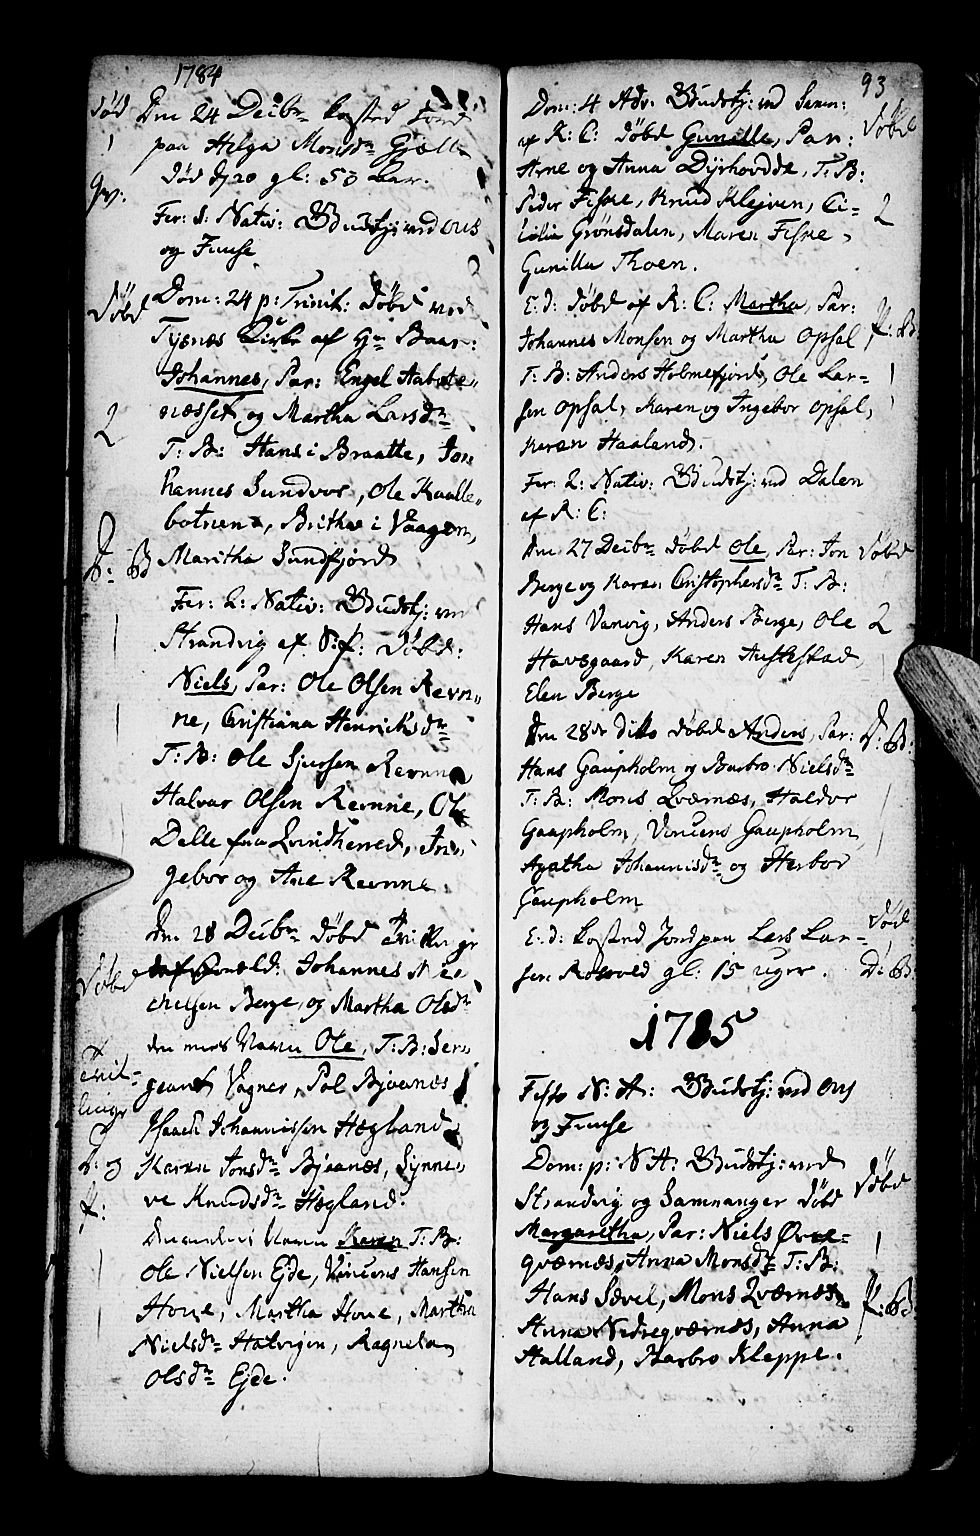 1784
Død
1
qv:
Den 24 Decbr kasted Jord
paa Helga Monsdr Gjæll
død gl: 53 Aar.
Fer: 1: Nativ: Gudstj: ved Ous
og Fuuse
Døbd
2
P: B
Dom: 24 p: Trinit: døbd ved
Tysnæs Kirke af Hr Baar:
Johannes, Par: Engel
næsset og Martha Larsdr
T: B: Hans i Braatte, Jo-
hannes Sundvor, Ole Kaalle-
botnen, Britha i Vaagen,
Maritha Sundfjord
Fer: 2: Nativ: Gudstj: ved
Strandvig af S: P: døbd:
Niels, Par: Ole Olsen Revn-
ne, Christiana Henrichsdr
T: B: Ole Sjursen Revnne
Halvar Olsen Revnne, Ole
Dalle fra Qvindherred, In-
gebor og Ane Revnne.
Døbd
Tvil-
linger
D: og
P:
Den 28 Decbr døbd Tvillinger
Johannes Mic-
chelsen Berge, og Martha Olsdr
den enes Navn Ole, T: B: Ser-
geant Vagner, Pol Bjøenæs
Isaach Johannissen Hægland
Karen Jonsdr Bjøenæs, Synne-
ve Knudsdr Hægland.
Den andens Navn Karen T: B:
Ole Nielsen Ejde, Vincens Hansen
Hove, Martha Hove, Martha
Nielsdr Halvigen, Ragnela
Olsdr Ejde.
93
Dom: 4 Adv: Gudstj: ved Samn:
af R: C: døbd Gunille, Par:
Arne og Anna Dyrhovdde, T: B:
Peder Fiskne, Knud Klejven, Ci-
cilia Grønsdalen, Maren Fiskne,
Gunilla Thoen.
Døbd
2
E: d: døbd af R: C: Martha, Par:
Johannes Monsen og Martha Opsal,
T: B: Anders Holmefjord, Ole Lar-
sen Opsal, Karen og Ingebor Opsal,
Karen Haaland.
P: B
1
Fer: 2: Nativ: Gudstj: ved Dalen
af R: C:
Den 27 Decbr døbd Ole, Par: Jon
Berge og Karen Christophersdr T: B:
Hans Vinvig, Anders Berge, Ole
Havsgaard, Karen Austestad,
Elen Berge
Døbd
2
Den 28de dito døbd Anders, Par:
Hans Gaupholm og Barbro Nielsdr
T: B: Mons Qværnæs, Haldor
Gaupholm, Vincens Gaupholm,
Agatha Johannisdr og Herbor
Gaupholm
D: B:
E: d: kasted Jord paa Lars Lar-
sen Røsvold gl: 15 uger.
Død
D: B:
1785
Festo N: A: Gudstj: ved Ous
og Fuuse
Dom: p: N A: Gudstj: ved
Strandvig og Samnanger døbd
Margaretha, Par: Niels Øvre-
qværnæs, Anna Monsdr T: B:
Hans Sævel, Mons Qværnæs,
Anna Nedreqværnæs, Anna
Halland, Barbro Kleppe.
Døbd
1
P: B